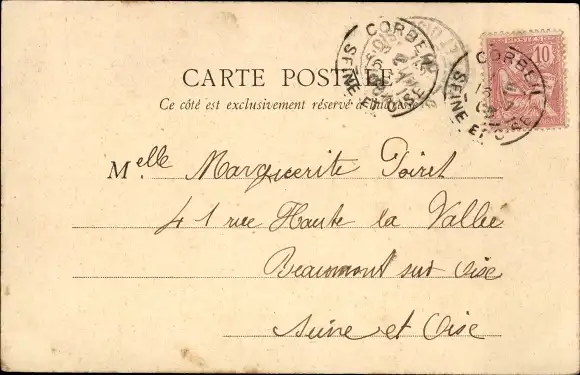 CORBEIL
SEINE ET OISE
POSTES
10
CORBEIL
SEINE ET OISE
CARTE POSTALE
Ce côté est exclusivement réservé à l'adresse
Melle Marguerite Poiret
41 rue Haute la Vallée
Beaumont sur Oise
Seine et Oise